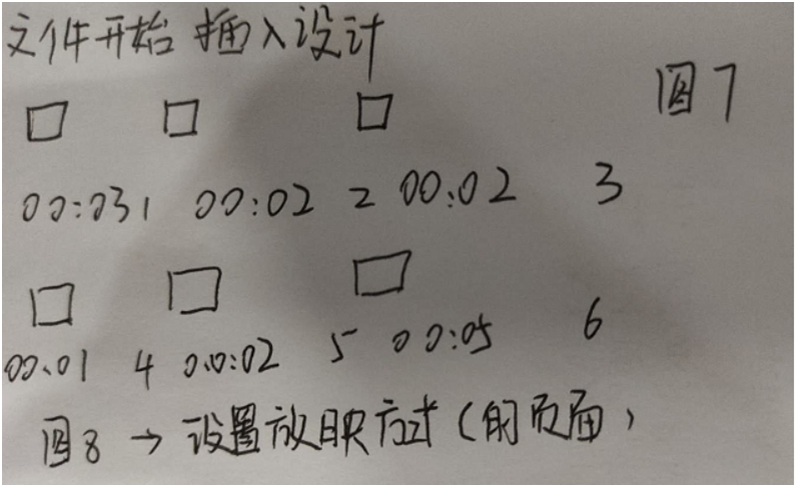 文件开始 插入设计
图7
00:03 1 00:02 2 00:02 3
00.01 4 00:02 5 00:05 6
图8 → 设置放映方式(的页面)